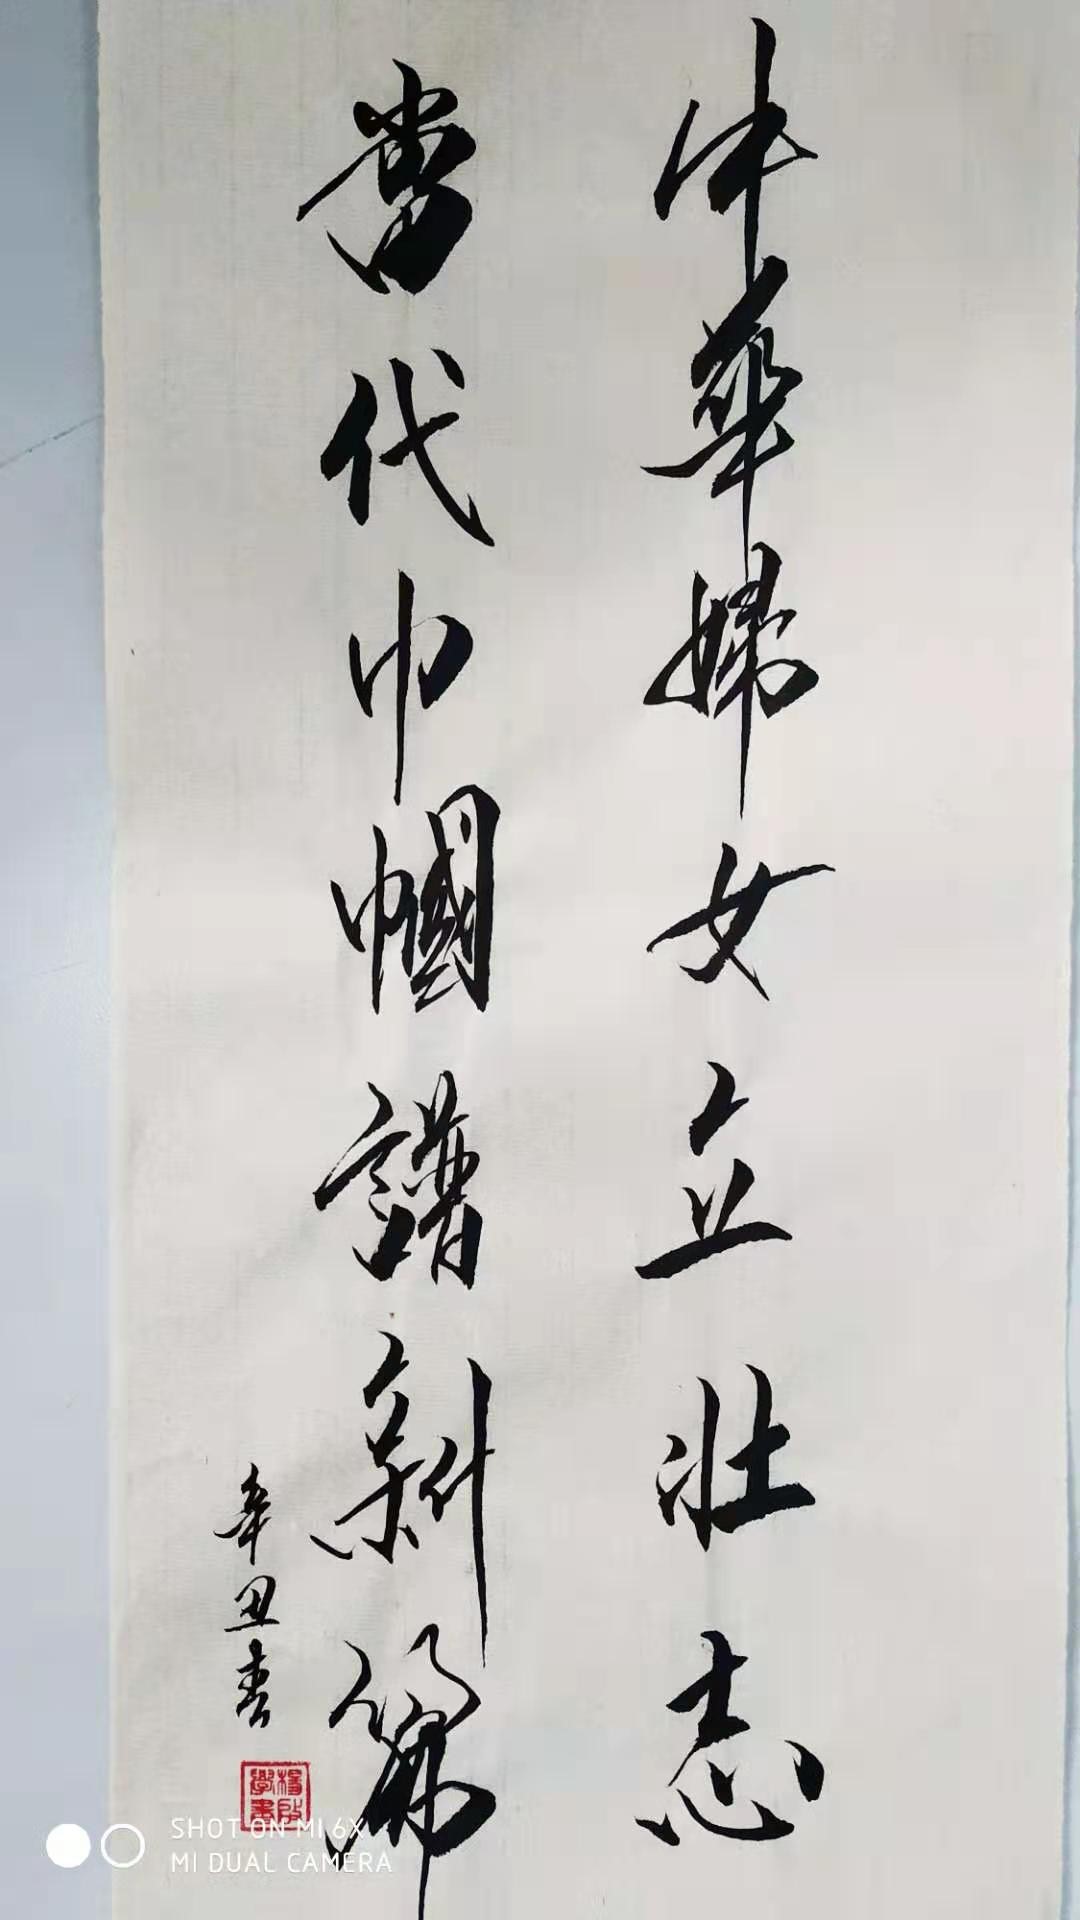 中華婦女立壯志
當代巾幗譜新篇
辛丑春
SHOT ON MI 6X
MI DUAL CAMERA